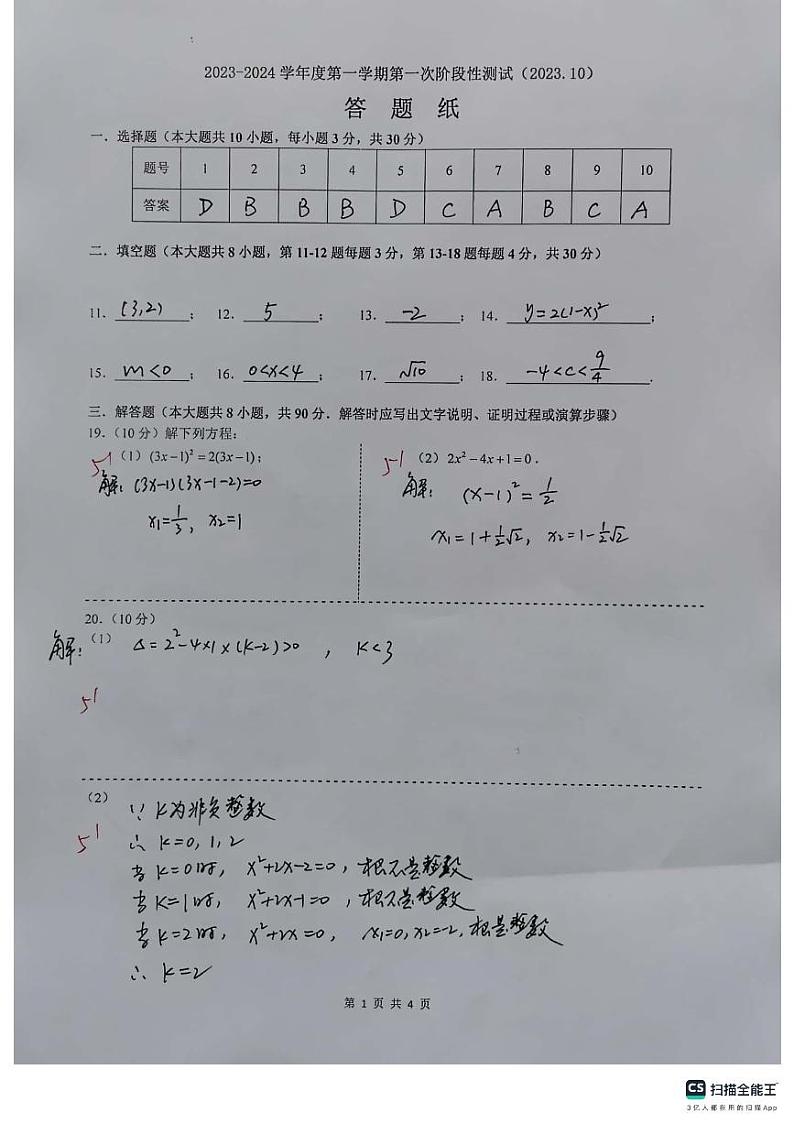 2023-2024 学年度第一学期第一次阶段性测试（2023.10）
答 题 纸
一．选择题（本大题共 10 小题，每小题 3 分，共 30 分）
题号 1 2 3 4 5 6 7 8 9 10
答案 D B B B D C A B C A
二．填空题（本大题共 8 小题，第 11-12 题每题 3 分，第 13-18 题每题 4 分，共 30 分）
11. (3,2) ； 12. 5 ； 13. -2 ； 14. y=2(1-x)² ；
15. m<0 ； 16. 0<x<4 ； 17. √10 ； 18. -4<c<9/4 .
三．解答题（本大题共 8 小题，共 90 分．解答时应写出文字说明、证明过程或演算步骤）
19.（10 分）解下列方程：
5' （1）(3x-1)²=2(3x-1)；
解：(3x-1)(3x-1-2)=0
x₁=1/3, x₂=1
5' （2）2x²-4x+1=0．
解： (x-1)²=1/2
x₁=1+1/2√2, x₂=1-1/2√2
20.（10 分）
解：（1） Δ=2²-4×1×(k-2)>0 , k<3
5'
（2） ∵ k为非负整数
5' ∴ k=0, 1, 2
当k=0时, x²+2x-2=0, 根不是整数
当k=1时, x²+2x-1=0, 根不是整数
当k=2时, x²+2x=0, x₁=0, x₂=-2, 根是整数
∴ k=2
第 1 页 共 4 页
CS 扫描全能王
3亿人都在用的扫描App